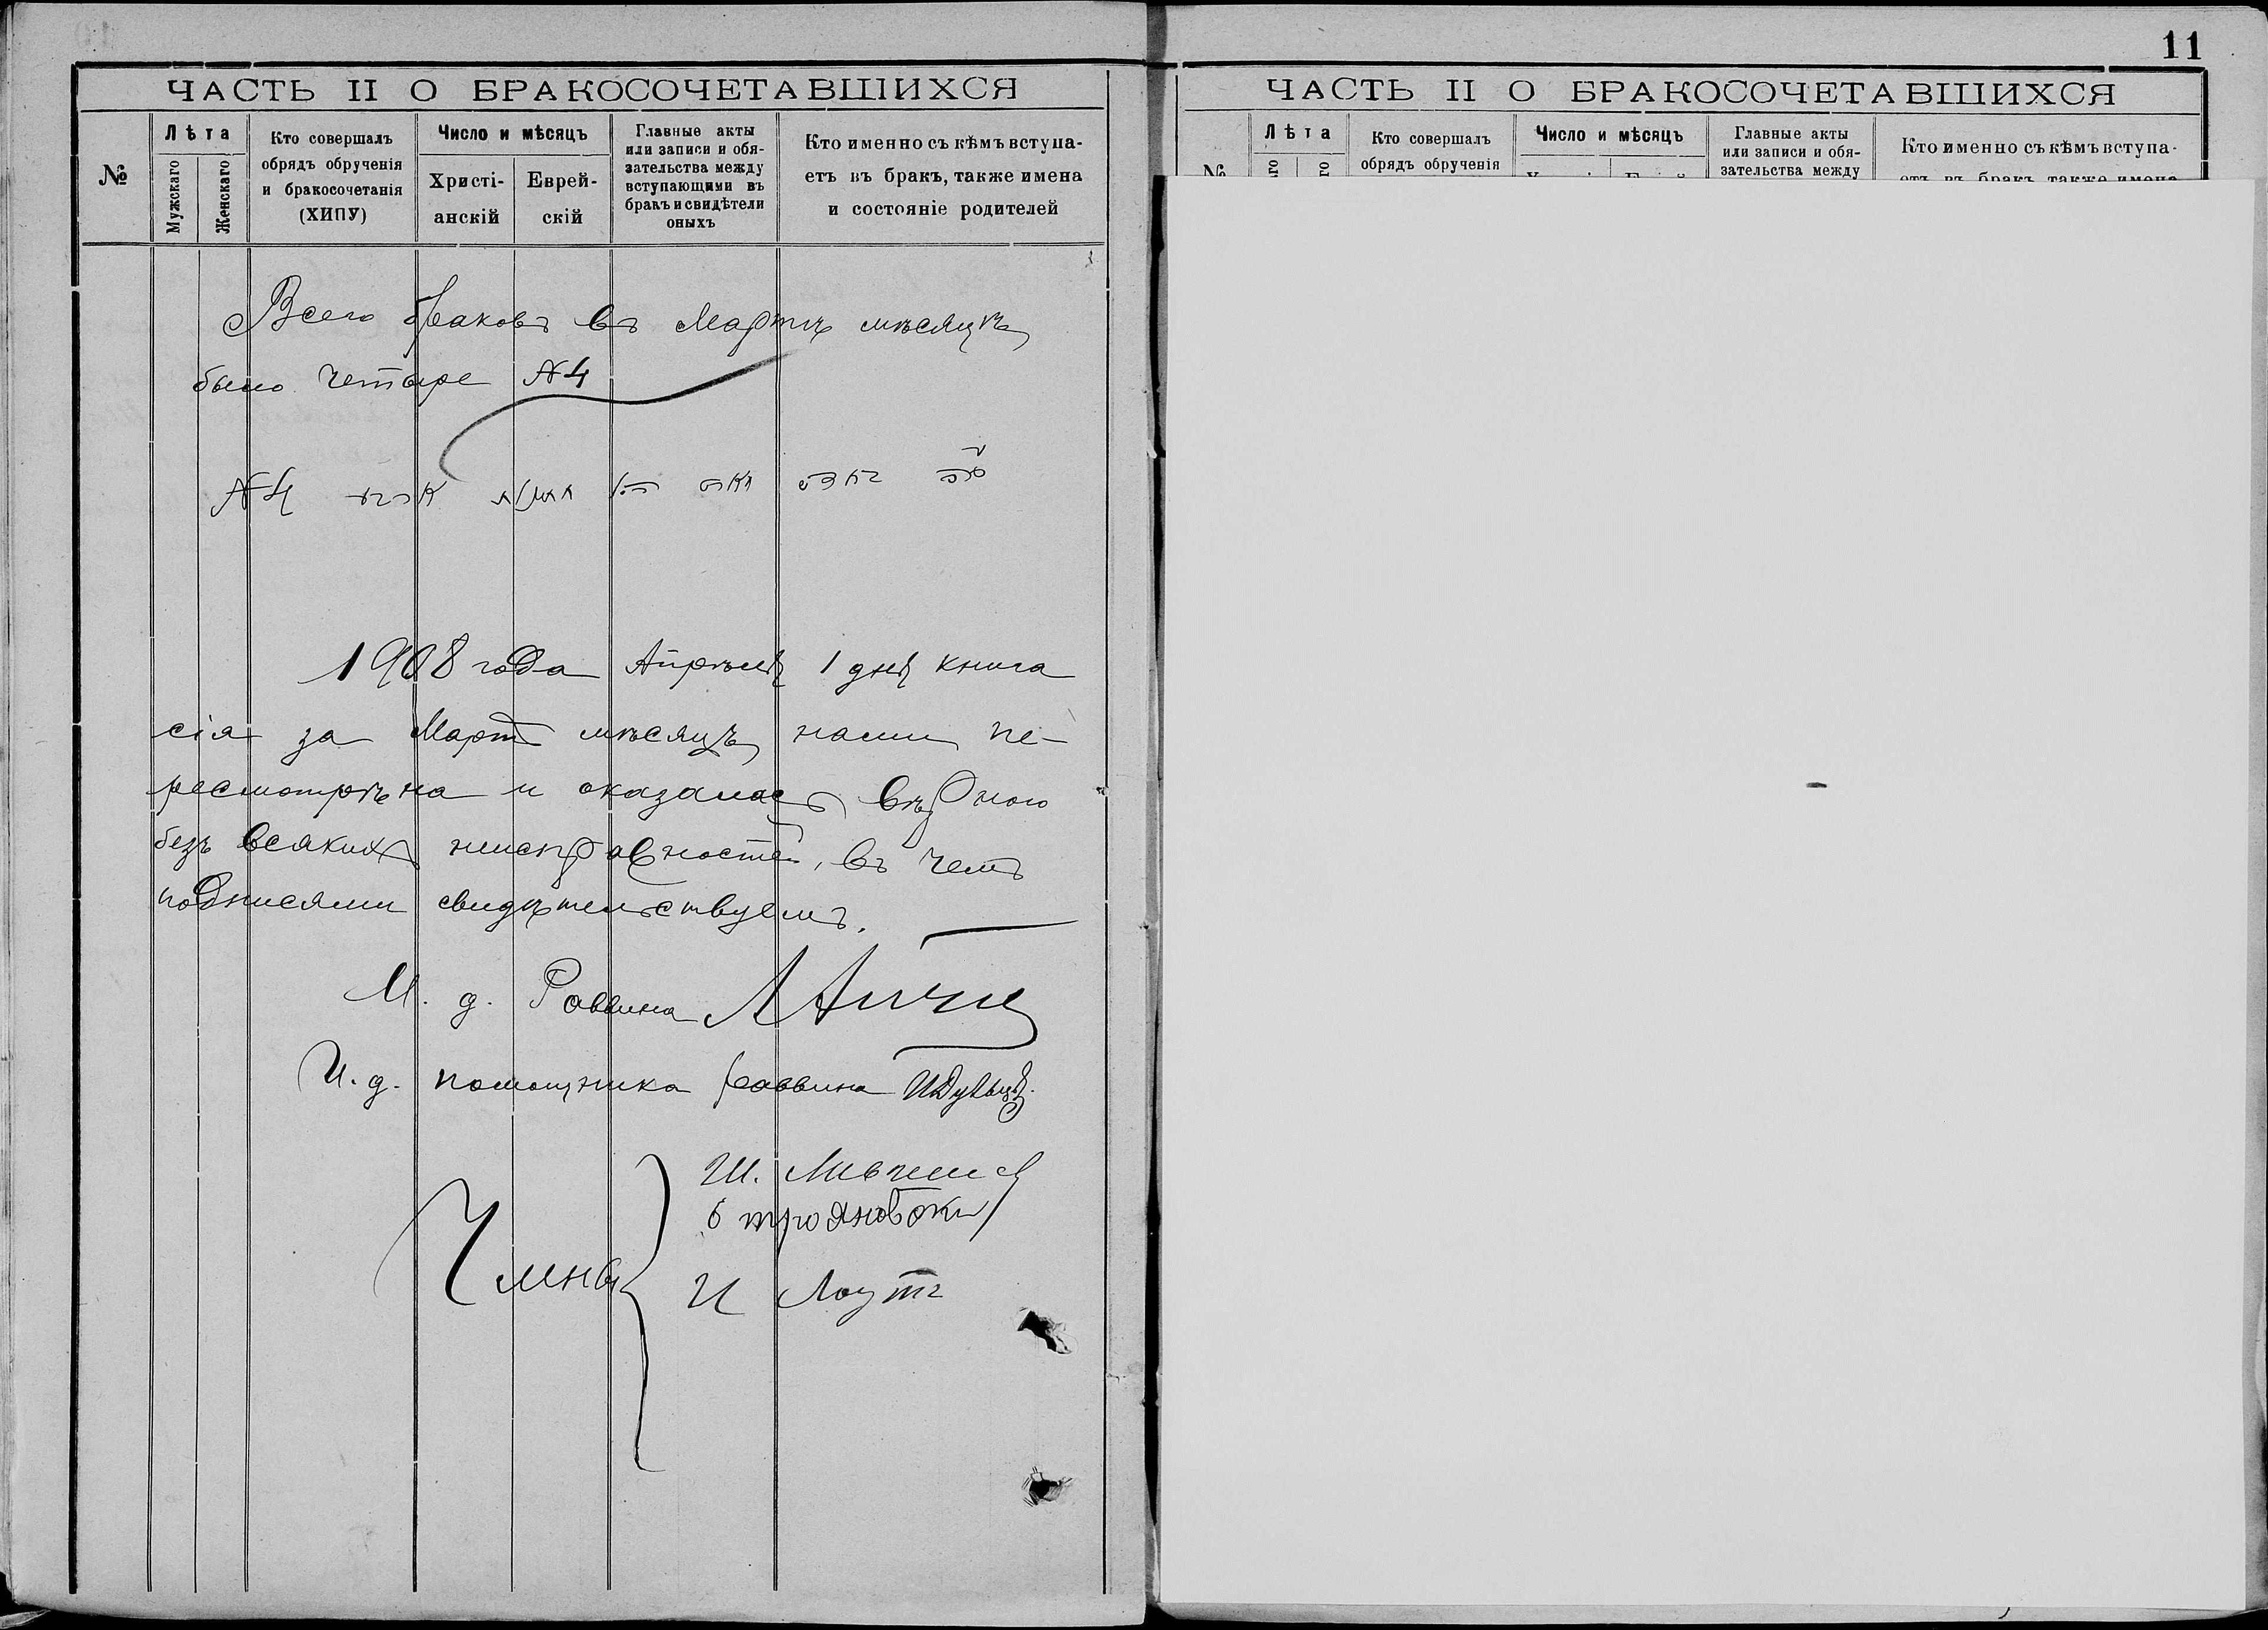 11
ЧАСТЬ II О БРАКОСОЧЕТАВШИХСЯ
№
Лѣта
Мужскаго
Женскаго
Кто совершалъ
обрядъ обрученія
и бракосочетанія
(ХИПУ)
Число и мѣсяцъ
Христі-
анскій
Еврей-
скій
Главные акты
или записи и обя-
зательства между
вступающими въ
бракъ и свидѣтели
оныхъ
Кто именно съ кѣмъ вступа-
етъ въ бракъ, также имена
и состояніе родителей
Всего браковъ въ Мартѣ мѣсяцѣ
было четыре №4
№4
1908 года Апрѣля 1 дня книга
сія за Мартъ мѣсяцъ нами пе-
ресмотрѣна и оказалась вѣрною
безъ всякихъ неисправностей, въ чемъ
подписями свидѣтельствуемъ.
И. д. Раввина
И. д. помощника раввина
Члены
Ш.
И
ЧАСТЬ II О БРАКОСОЧЕТАВШИХСЯ
№
Лѣта
Кто совершалъ
обрядъ обрученія
Число и мѣсяцъ
Главные акты
или записи и обя-
зательства между
Кто именно съ кѣмъ вступа-
етъ въ бракъ, также имена